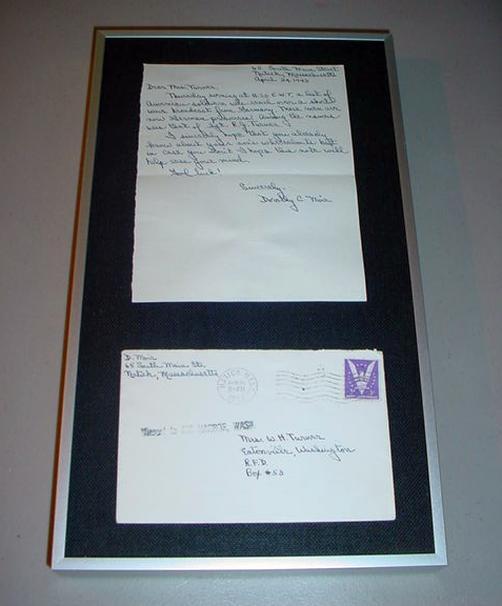 65 South Main Street
Natick, Massachusetts
April 24, 1943
Dear Mrs. Turner,
Thursday evening at E.W.T. a list of
American soldiers was over a short
wave broadcast from Germany. These men are
now German prisoners. Among the names
was that of Sgt. R. J. Turner.
I sincerely hope that you already
know about your son's whereabouts but
in case you don't I hope this note will
help ease your mind.
Good luck!
Sincerely,
Dorothy C. Moir
D. Moir
65 South Main St.
Natick, Massachusetts
NATICK MASS.
WASH.
Mrs. W. H. Turner
Eatonville, Washington
R.F.D.
Box #53